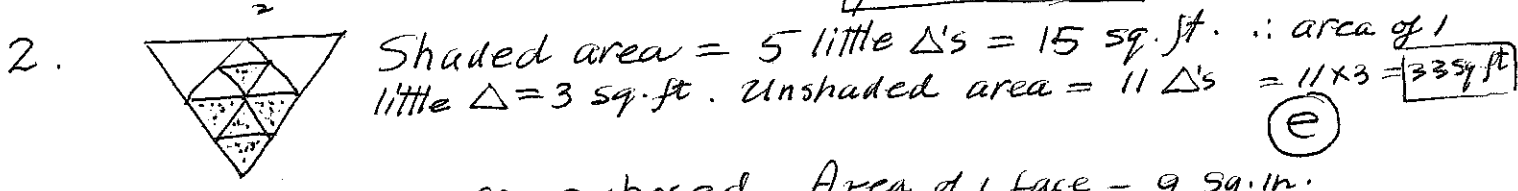 2. Shaded area = 5 little Δ's = 15 sq. ft. ∴ area of 1
little Δ = 3 sq. ft. Unshaded area = 11 Δ's = 11 × 3 = 33 sq ft
e
Area of 1 face = 9 sq. in.